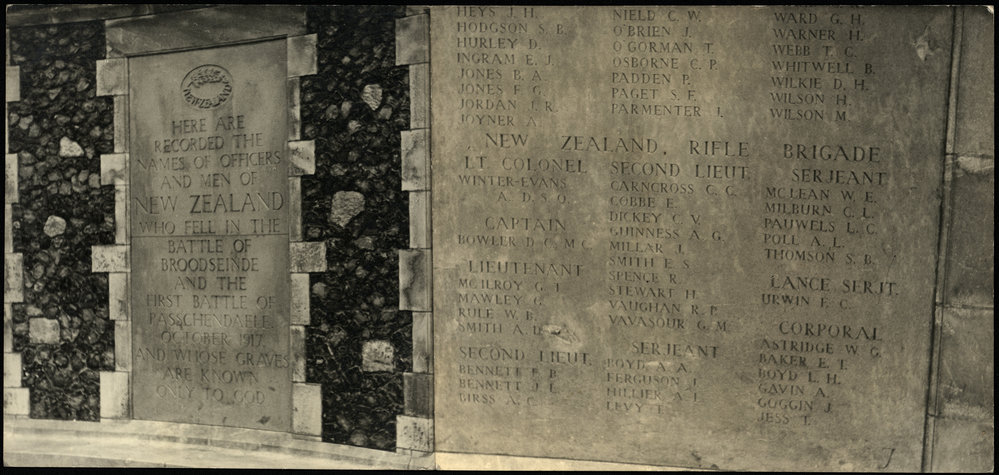 NEW ZEALAND
HERE ARE
RECORDED THE
NAMES OF OFFICERS
AND MEN OF
NEW ZEALAND
WHO FELL IN THE
BATTLE OF
BROODSEINDE
AND THE
FIRST BATTLE OF
PASSCHENDAELE
OCTOBER 1917
AND WHOSE GRAVES
ARE KNOWN
ONLY TO GOD
HEYS J. H.
HODGSON S. B.
HURLEY D.
INGRAM E. J.
JONES B. A.
JONES F. G.
JORDAN J. R.
JOYNER A.
NIELD C. W.
O'BRIEN J.
O'GORMAN T.
OSBORNE C. P.
PADDEN P.
PAGET S. F.
PARMENTER J.
WARD G. H.
WARNER H.
WEBB T. C.
WHITWELL B.
WILKIE D. H.
WILSON H.
WILSON M.
NEW ZEALAND RIFLE BRIGADE
LT. COLONEL
WINTER-EVANS
A. D.S.O.
CAPTAIN
BOWLER D. C. M.C.
LIEUTENANT
MCILROY G. J.
MAWLEY G.
RULE W. B.
SMITH A.
SECOND LIEUT.
BENNETT F. B.
BENNETT J. L.
BIRSS A. C.
SECOND LIEUT.
CARNCROSS C. C.
COBBE E.
DICKEY C. V.
GUINNESS A. G.
MILLAR J.
SMITH E. S.
SPENCE R.
STEWART H.
VAUGHAN R. P.
VAVASOUR G. M.
SERJEANT
BOYD A. A.
FERGUSON J.
HILLIER A. J.
LEVY T.
SERJEANT
MCLEAN W. E.
MILBURN C. L.
PAUWELS L. C.
POLL A. L.
THOMSON S. B.
LANCE SERJT.
URWIN F. C.
CORPORAL
ASTRIDGE W. G.
BAKER E. T.
BOYD L. H.
GAVIN A.
GOGGIN J.
JESS T.